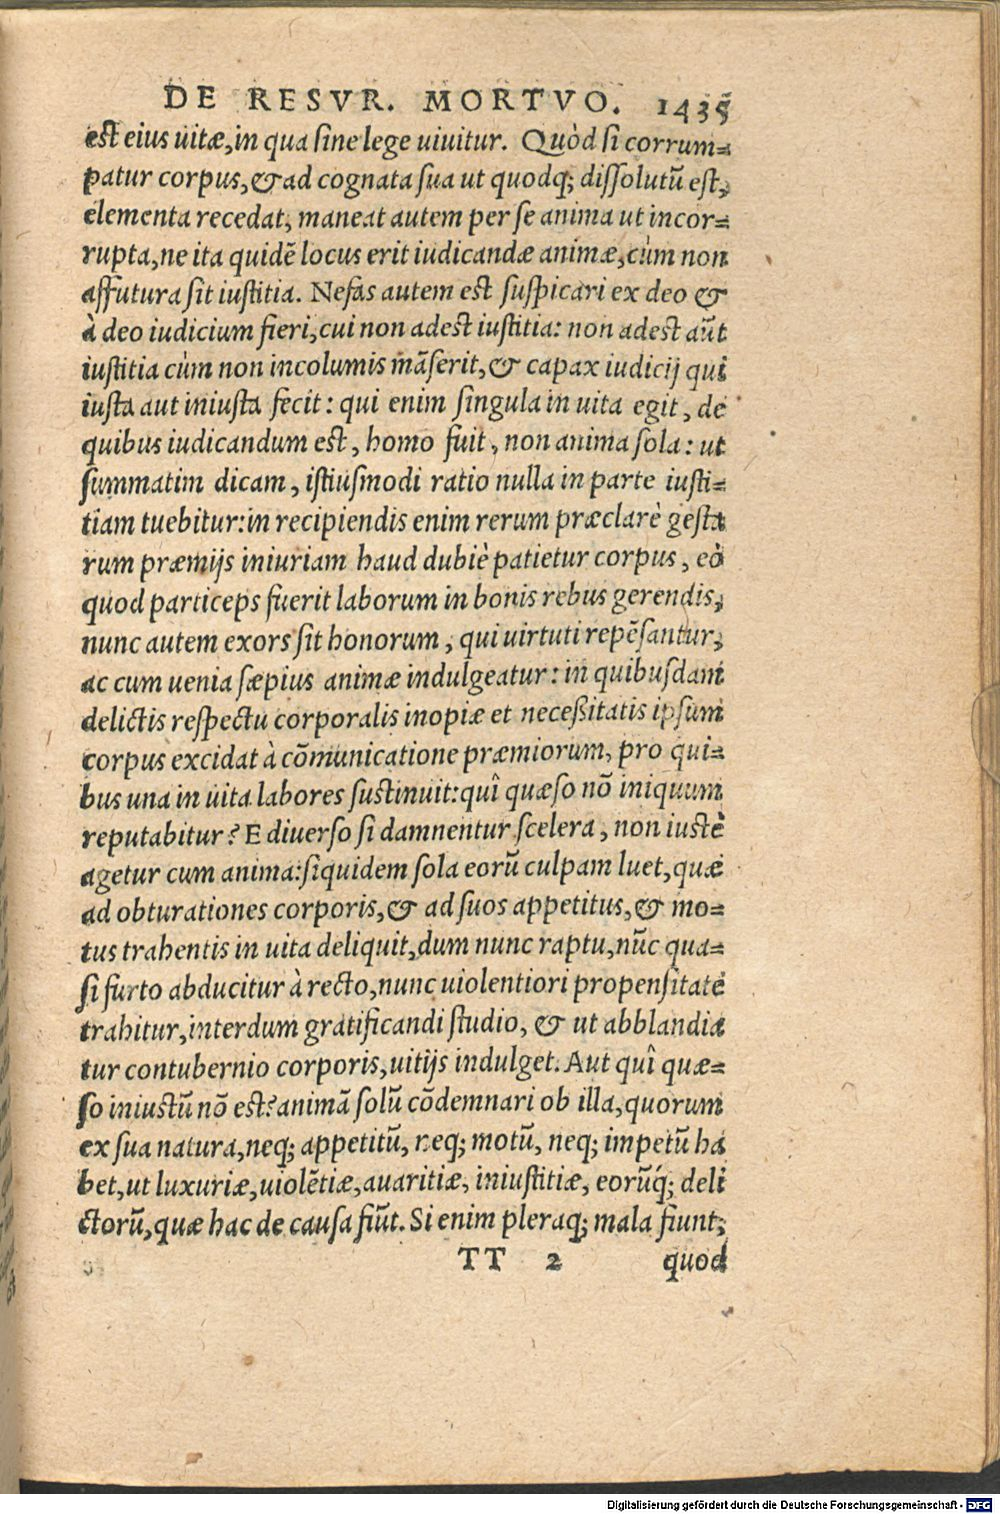 DE RESVR. MORTVO. 1435
est eius uitæ, in qua sine lege uiuitur. Quòd si corrum=
patur corpus, & ad cognata sua ut quodq; dissolutũ est,
elementa recedat, maneat autem per se anima ut incor=
rupta, ne ita quidẽ locus erit iudicandæ animæ, cùm non
affutura sit iustitia. Nefas autem est suspicari ex deo &
à deo iudicium fieri, cui non adest iustitia: non adest aũt
iustitia cùm non incolumis mãserit, & capax iudicij qui
iusta aut iniusta fecit: qui enim singula in uita egit, de
quibus iudicandum est, homo fuit, non anima sola: ut
summatim dicam, istiusmodi ratio nulla in parte iusti=
tiam tuebitur: in recipiendis enim rerum præclarè gesta
rum præmijs iniuriam haud dubiè patietur corpus, eò
quod particeps fuerit laborum in bonis rebus gerendis,
nunc autem exors sit honorum, qui uirtuti repẽsantur,
ac cum uenia sæpius animæ indulgeatur: in quibusdam
delictis respectu corporalis inopiæ et necessitatis ipsum
corpus excidat à cõmunicatione præmiorum, pro qui=
bus una in uita labores sustinuit: quî quæso nõ iniquum
reputabitur? E diuerso si damnentur scelera, non iustè
agetur cum anima: siquidem sola eorũ culpam luet, quæ
ad obturationes corporis, & ad suos appetitus, & mo=
tus trahentis in uita deliquit, dum nunc raptu, nũc qua=
si furto abducitur à recto, nunc uiolentiori propensitate
trahitur, interdum gratificandi studio, & ut abblandia
tur contubernio corporis, uitijs indulget. Aut quî quæ=
so iniustũ nõ est? animã solũ cõdemnari ob illa, quorum
ex sua natura, neq; appetitũ, neq; motũ, neq; impetũ ha
bet, ut luxuriæ, uiolẽtiæ, auaritiæ, iniustitiæ, eorũq́; deli
ctorũ, quæ hac de causa fiũt. Si enim pleraq; mala fiunt,
TT 2 quod
Digitalisierung gefördert durch die Deutsche Forschungsgemeinschaft - DFG